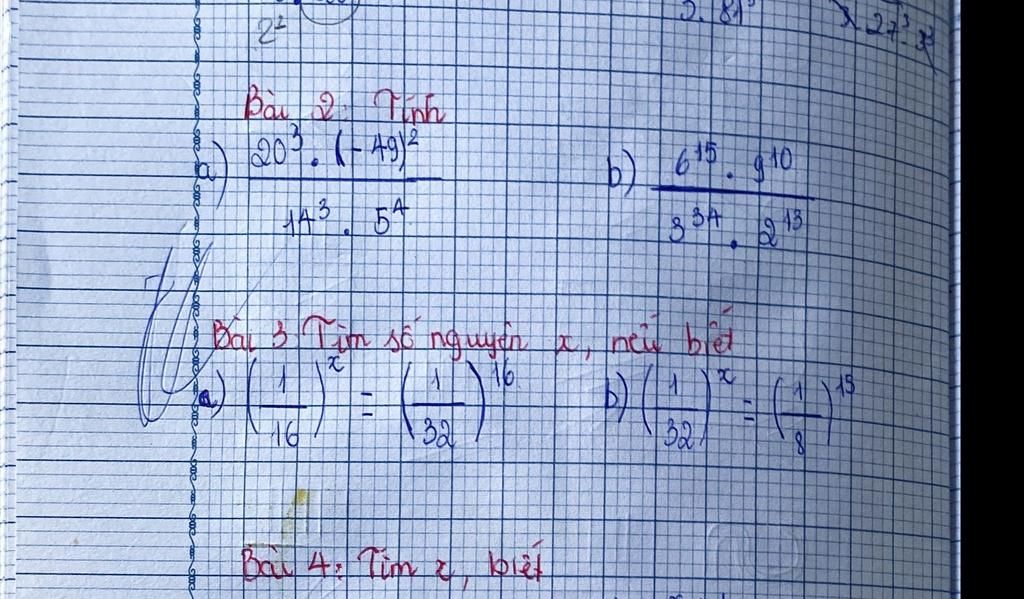 2²
5. 81³
27³. 3³
Bài 2: Tính
a) 20³ . (-49)² / 14³ . 5⁴
b) 6¹⁵ . 9¹⁰ / 3³⁴ . 2¹³
Bài 3 Tìm số nguyên x, nếu biết
a) (1/16)ˣ = (1/32)¹⁶
b) (1/32)ˣ = (1/8)¹⁵
Bài 4: Tìm x, biết